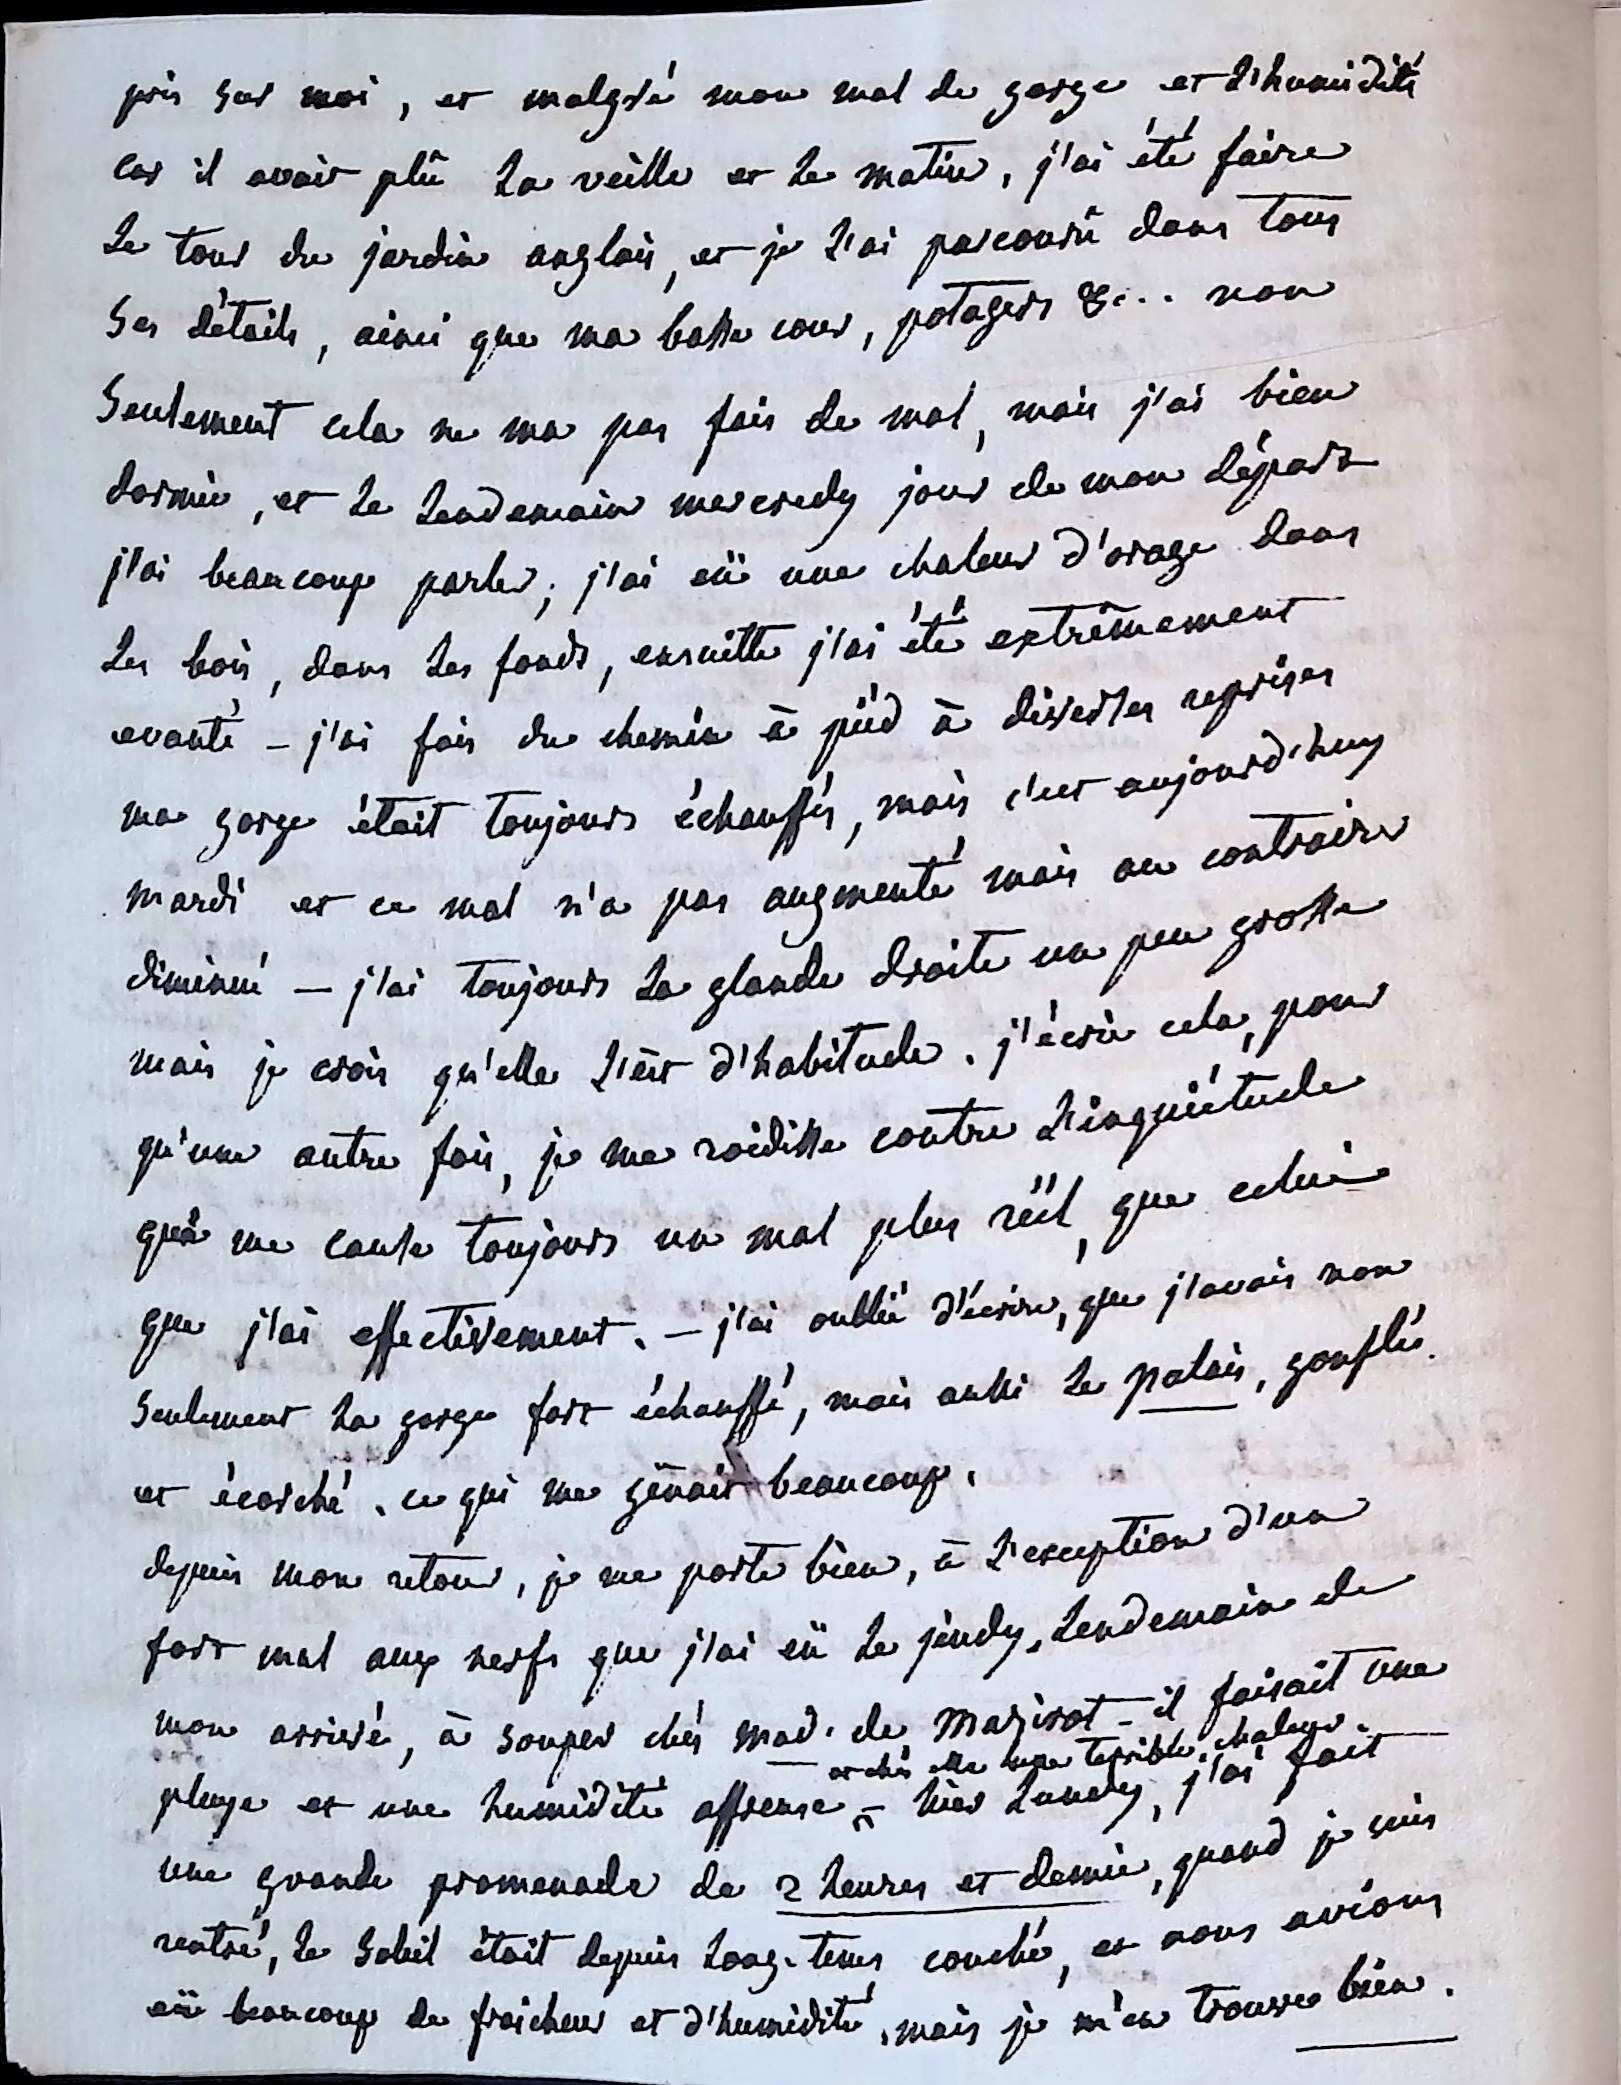 pris sur moi, et malgré mon mal de gorge et l'humidité
car il avait plû la veille et le matin, j'ai été faire
le tour du jardin anglais, et je l'ai parcourû dans tous
ses détails, ainsi que ma basse cour, potagers &c... non
seulement cela ne ma pas fais de mal, mais j'ai bien
dormie, et le lendemain mercredy jour de mon départ
j'ai beaucoup parler; j'ai eü une chaleur d'orage dans
les bois, dans les fonds, ensuitte j'ai été extrêmement
evanté - j'ai fais du chemin à piéd à diverses reprises
ma gorge était toujours échauffés, mais c'est aujourd'huy
mardi et ce mal n'a pas augmenté mais au contraire
diminué - j'ai toujours la glande droite un peu grosse
mais je crois qu'elle l'est d'habitude. j'écris cela, pour
qu'une autre fois, je me roidisse contre l'inquiétude
qui me cause toujours un mal plus réel, que celui
que j'ai effectivement. - j'ai oublié d'écrire, que j'avais non
seulement la gorge fort échauffé, mais aussi le palais, gonflés
et écorché. ce qui me gênait beaucoup.
depuis mon retour, je me porte bien, à l'exception d'un
fort mal aux nerfs que j'ai eü le jeudy, lendemain de
mon arrivé, à souper chés mad. de Magirot - il faisait une
et chés elle une terrible chaleur.
pluye et une humidité affreuse - hier lundy, j'ai fait
une grande promenade de 2 heures et demie, quand je suis
rentré, le soleil était depuis long-tems couché, et nous avions
eü beaucoup de fraicheur et d'humidité, mais je m'en trouve bien.